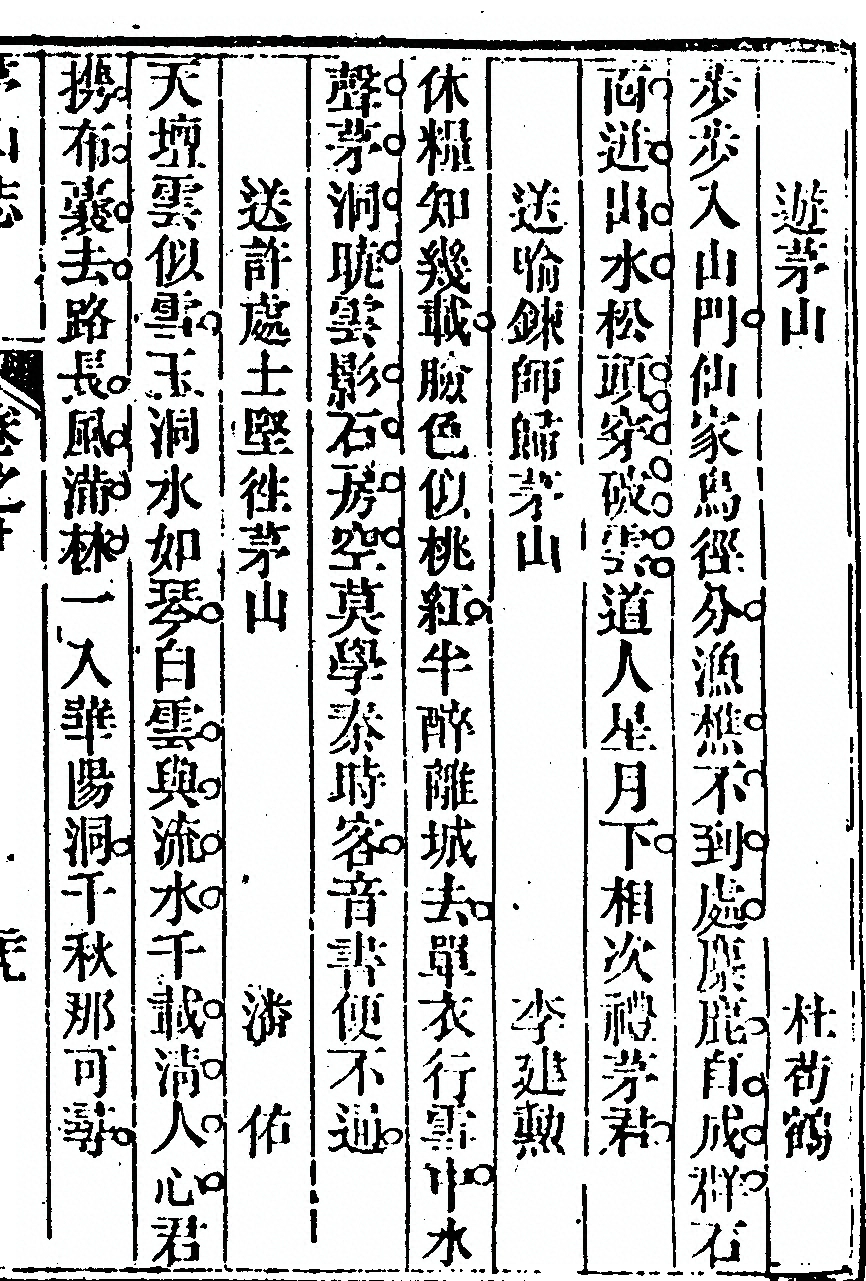 遊茅山　杜荀鶴
步步入山門仙家鳥徑分漁樵不到處麋鹿自成群石
面迸出水松頭穿破雲道人星月下相次禮茅君
送喻鍊師歸茅山　李建勲
休糧知幾載臉色似桃紅半醉離城去單衣行雪中水
聲茅洞曉雲影石房空莫學秦時客音書便不通
送許處士堅徃茅山　潘佑
天壇雲似雪玉洞水如琴白雲與流水千載清人心君
携布囊去路長風滿林一入華陽洞千秋那可尋
茅山志　卷之十